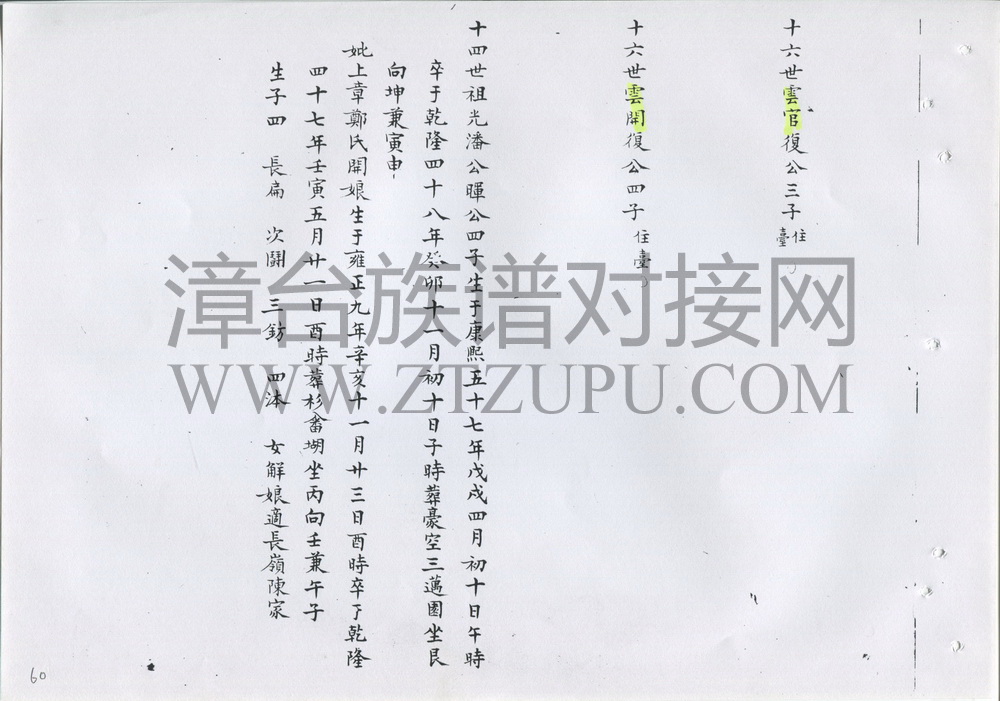 十六世雲官復公三子住臺
十六世雲開復公四子住臺
十四世祖光潘公暉公四子生于康熙五十七年戊戌四月初十日午時
卒于乾隆四十八年癸卯十一月初十日子時葬豪空三邁園坐艮
向坤兼寅申
妣上章鄭氏開娘生于雍正九年辛亥十一月廿三日酉時卒于乾隆
四十七年壬寅五月廿一日酉時葬杉畲坳坐丙向壬兼午子
生子四 長扁 次鬪 三鈁 四 女解娘適長嶺陳家
漳台族谱对接网
WWW.ZTZUPU.COM
60